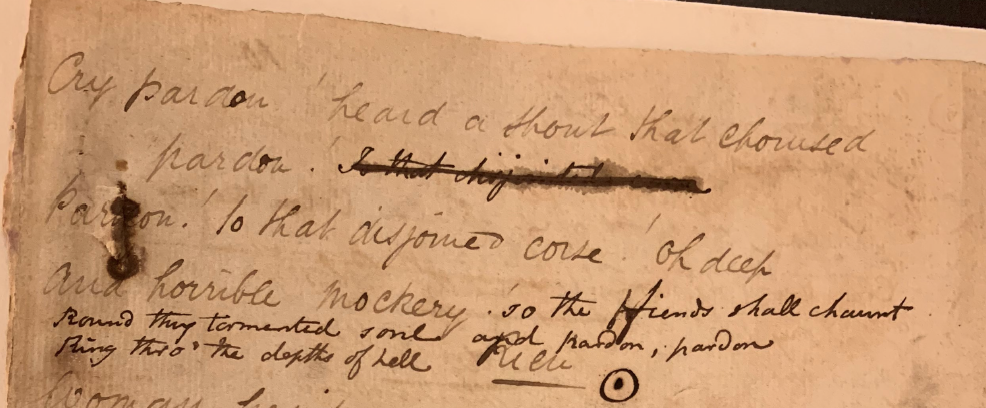 Cry pardon! heard a shout that chorused
pardon! To that disjointed corse
Pardon! to that disjoined corse! Oh deep
and horrible mockery! so the ffiends shall chaunt
Round thy tormented soul and pardon, pardon
Ring thro' the depths of hell
Woman